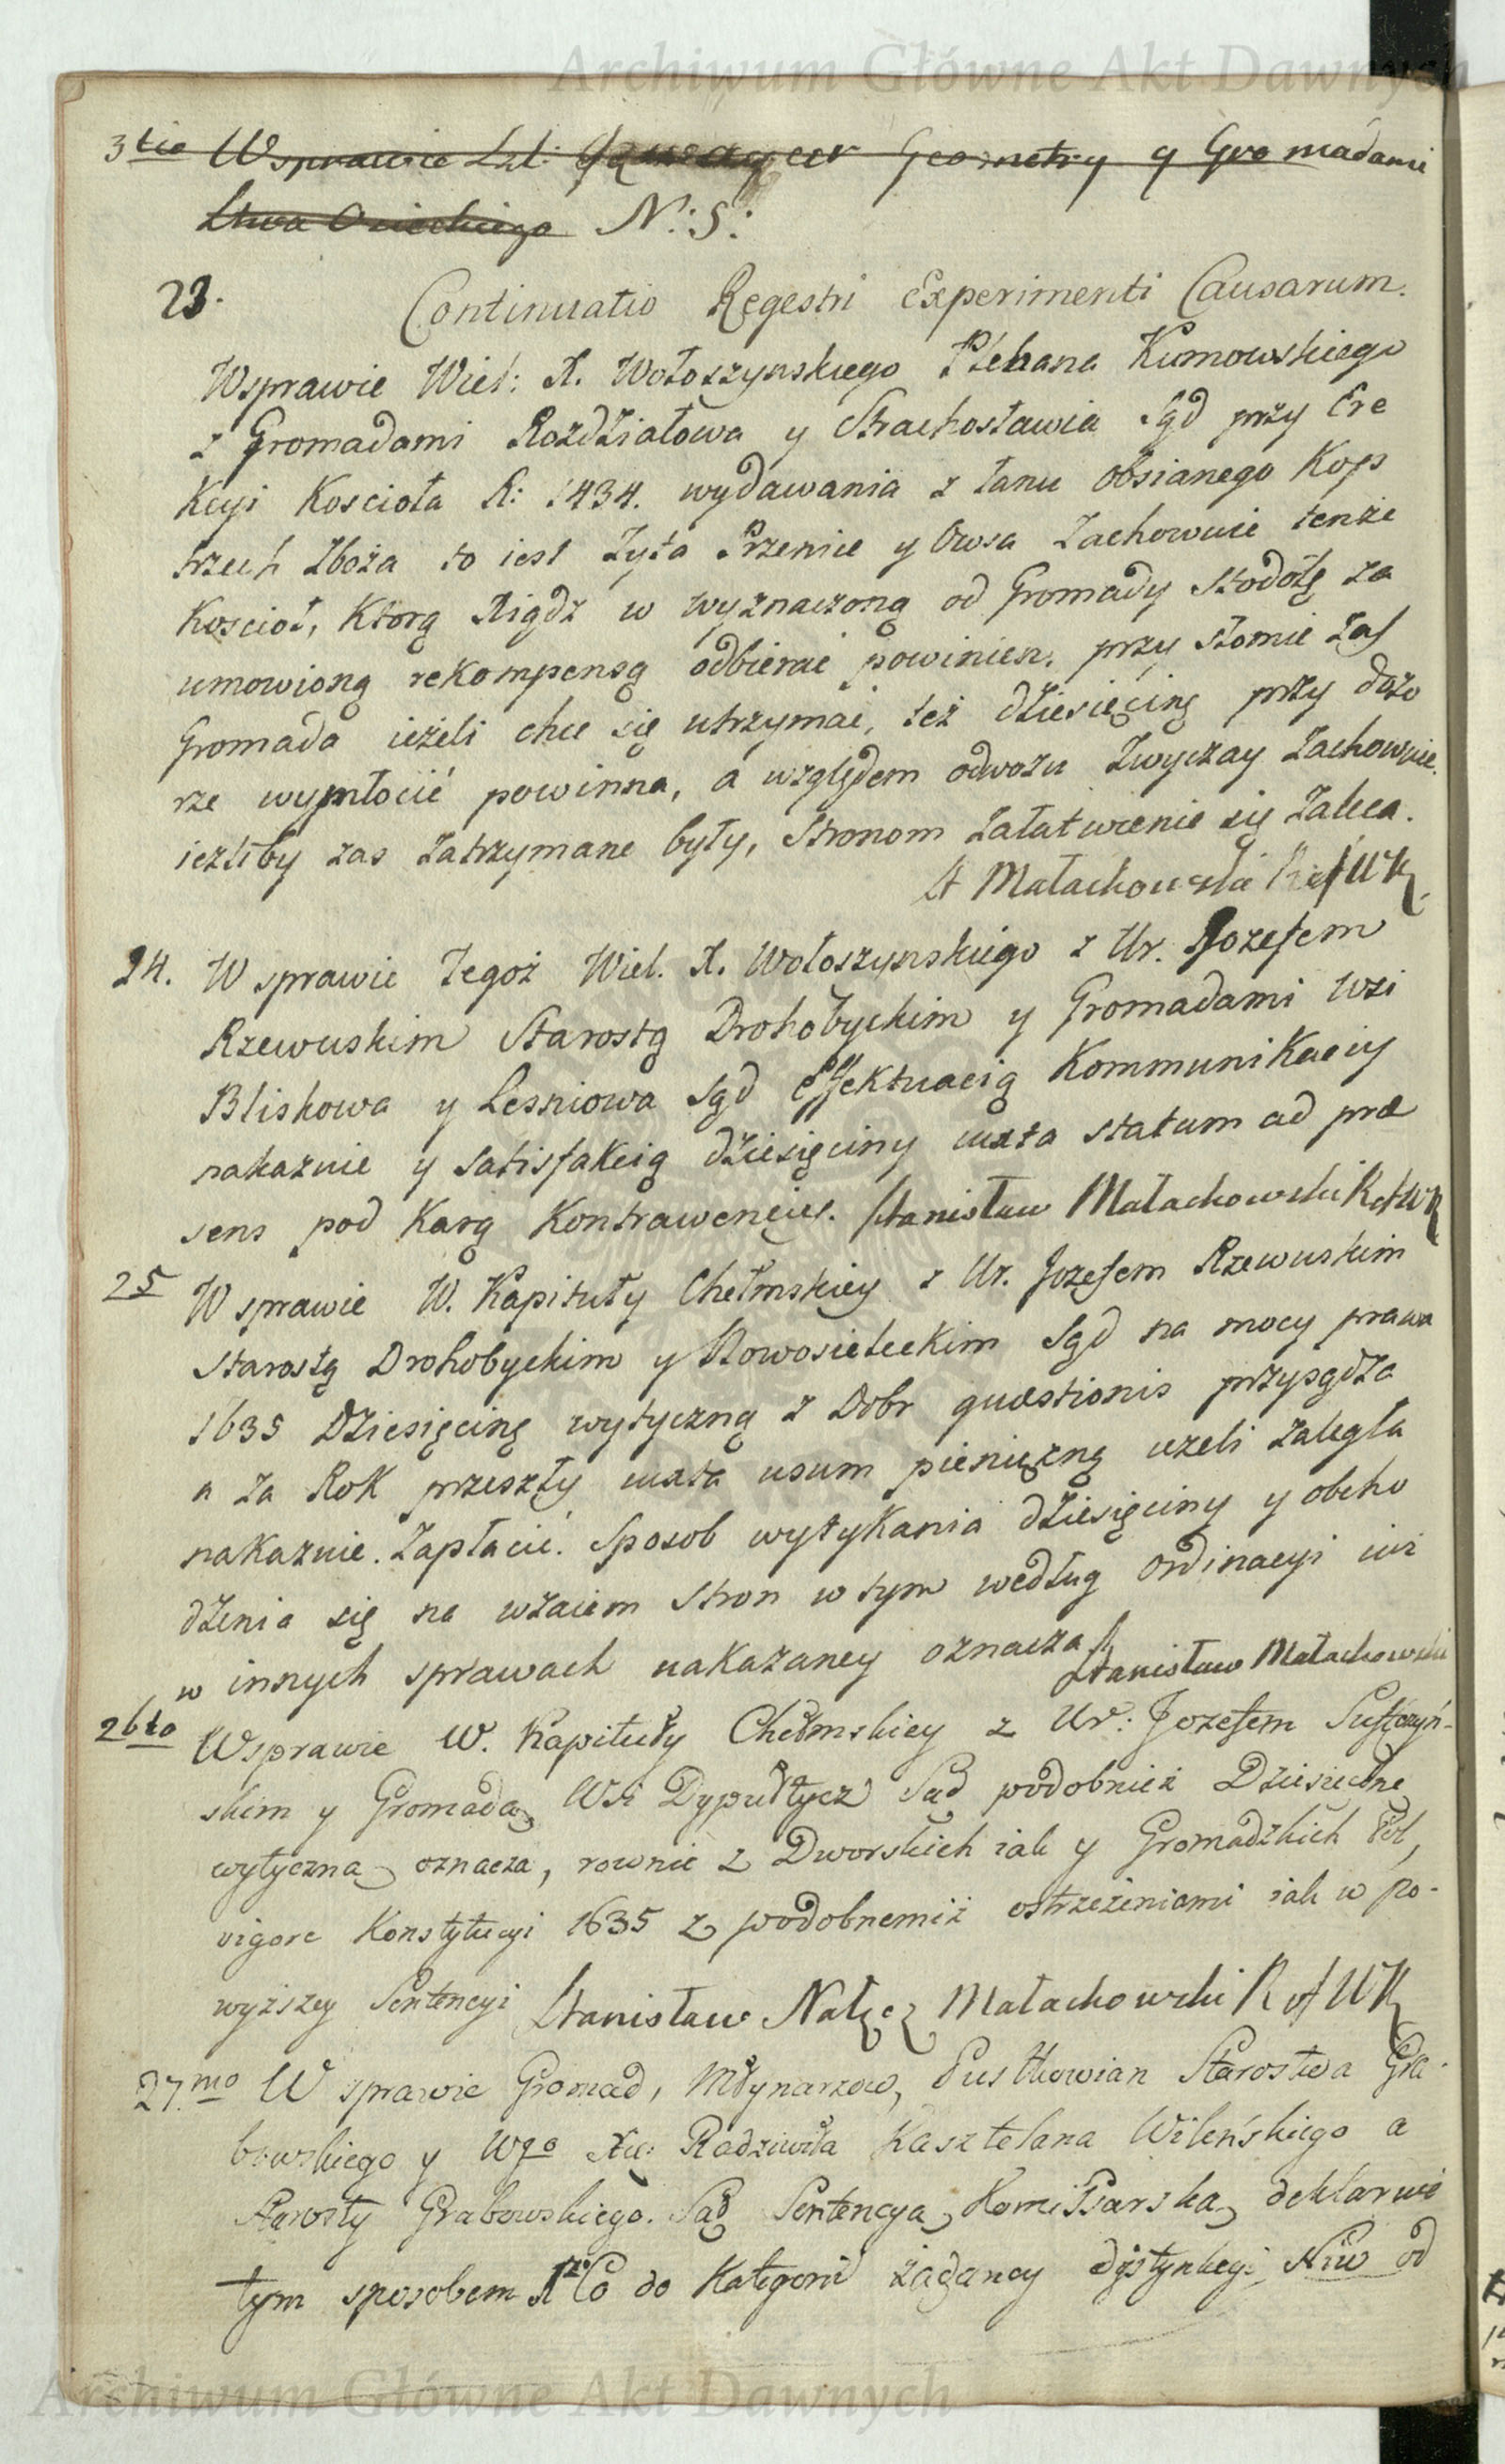 Archiwum Główne Akt Dawnych
3tio Wsprawie Geometry y Gromadami
Ltwa Osieckiego N: 5:
23. Continuatio Regestri Experimenti Causarum.
Wsprawie Wiel: X. Wołoszynskiego Plebana Kumowskiego
z Gromadami Rozdziałowa y Strachosławia Sąd przy Ere
Kcyi Koscioła R: 1434. wydawania z łanu obsianego Kop
trzech Zboża to iest Zyta Przenice y Owsa Zachowuie tenże
Koscioł, Ktorą Xiądz w wyznaczoną od Gromady stodołę za
umowioną rekompensą odbierać powinien, przy słomie zaś
Gromada ieżeli chce się utrzymać, też dziesięcinę przy dozo
rze wymłocić powinna, a względem odwozu Zwyczay Zachowuie.
ieżliby zas Zatrzymane były, Stronom Załatwienie się Zaleca.
St Małachowski Ref WK
24. W sprawie Tegoż Wiel. X. Wołoszynskiego z Ur. Jozefem
Rzewuskim Starostą Drohobyckim y Gromadami Wsi
Bliskowa y Lesniowa Sąd Effektuacią Kommunikaciy
nakazuie y Satisfakcią dziesięciny iuxta statum ad præ
sens pod Karą Kontrawencyi. Stanisław Małachowski Ref WK
25 W sprawie W. Kapituły Chełmskiey z Ur. Jozefem Rzewuskim
Starostą Drohobyckim y Nowosieleckim Sąd na mocy prawa
1635 Dziesięcinę wytyczną z Dobr quæstionis przysądza
a za Rok przeszły iuxta usum pieniężną ieżeli zaległa
nakazuie Zapłacić. Sposob wytykania dziesięciny y obcho
dzenia się na wzaiem Stron w tym według Ordinacyi iuż
w innych sprawach nakazaney oznacza
Stanisław Małachowski
26to Wsprawie W. Kapituły Chełmskiey z Ur: Jozefem
skim y Gromadą Wsi Dypułtycz Sąd podobnież Dziesięcinę
wytyczną oznacza, rownie z Dworskich iak y Gromadzkich Pol,
vigore Konstytucyi 1635 z podobnemiż ostrzeżeniami iak w po-
wyższey Sentencyi Stanisław Nałęcz Małachowski R ef WK
27.mo W sprawie Gromad, Młynarzow, Pustkowian Starostwa Gra-
bowskiego y Wgo Xcia Radziwiła Kasztelana Wileńskiego a
Starosty Grabowskiego. Sąd Sentencyą Komissarską deklaruie
tym sposobem 1mo Co do Kategorii żądaney dystynkcyi Niw od
Archiwum Główne Akt Dawnych